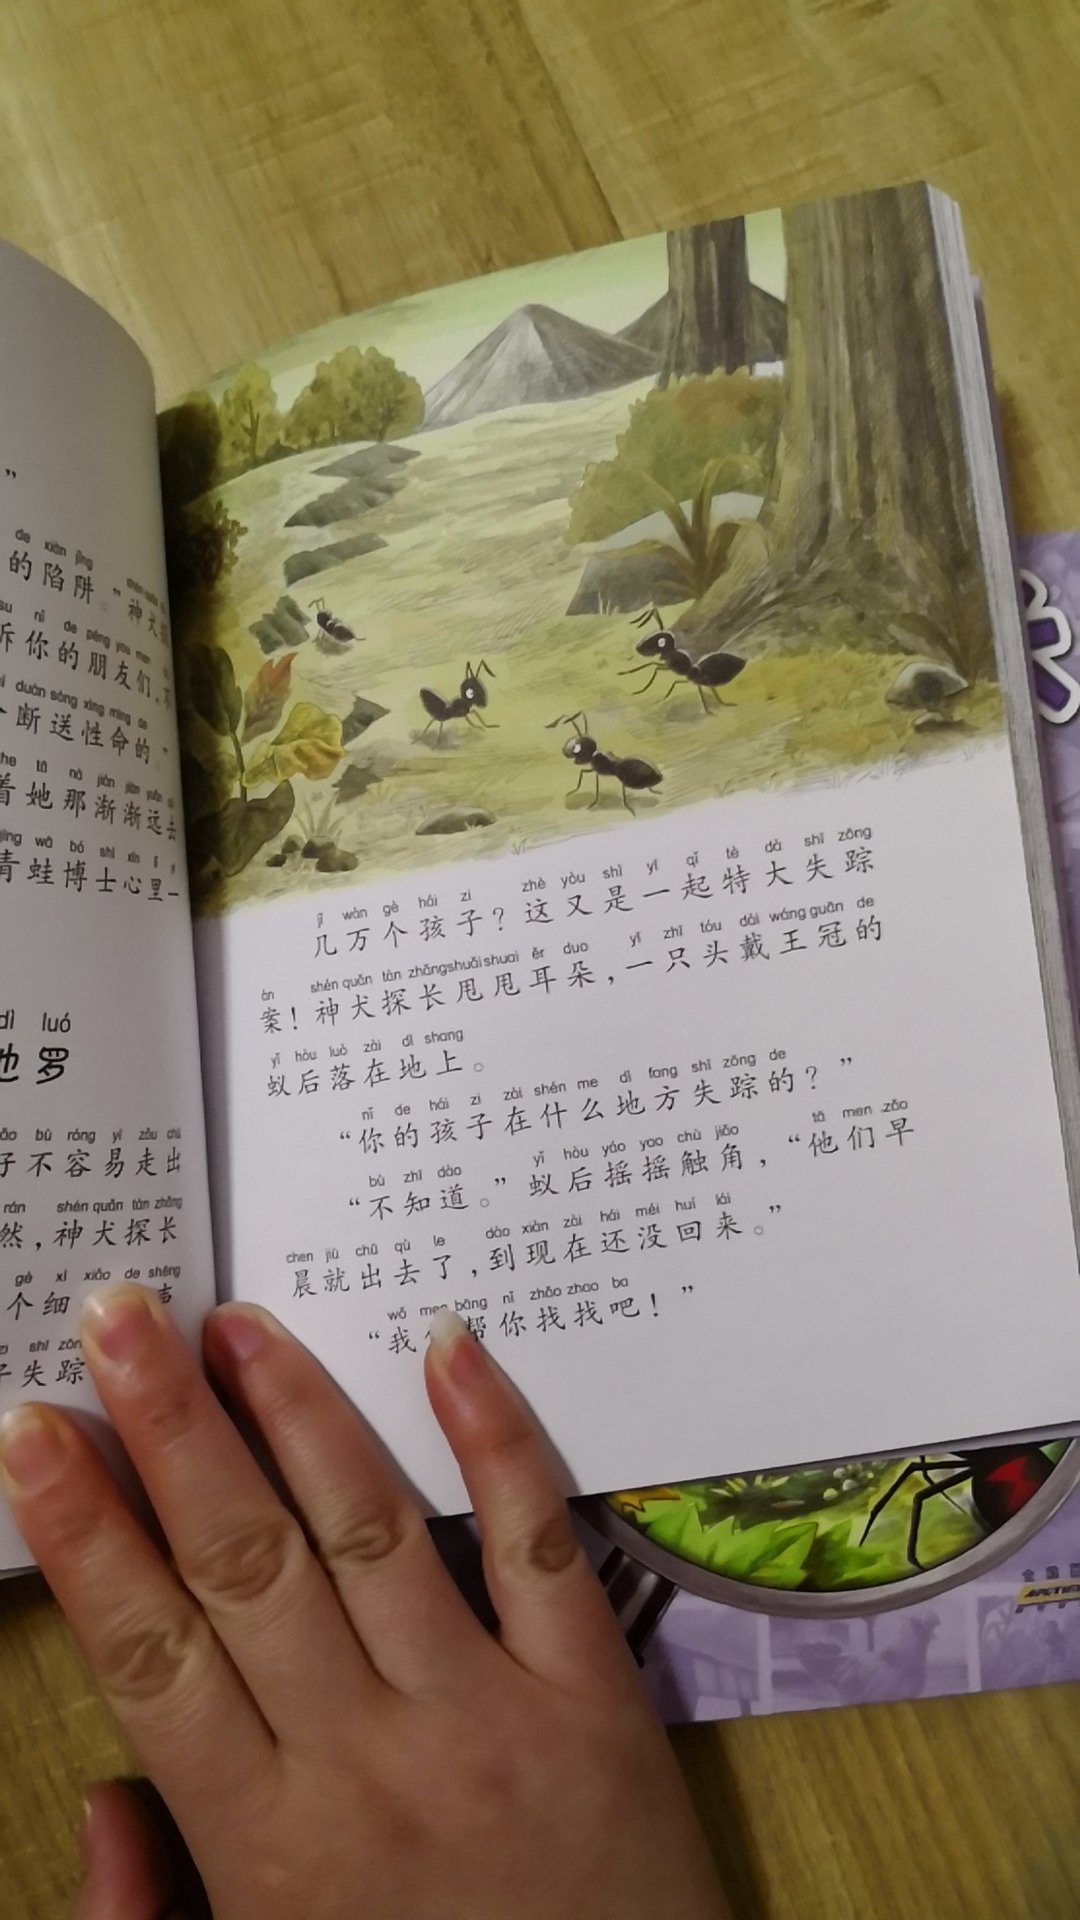 ”
de xiàn jǐng
的陷阱。”神犬
nǐ de péng you men
诉你的朋友们，
duàn sòng xìng mìng de
断送性命的。”
zhe tā nà jiàn jiàn yuǎn qù
着她那渐渐远去
qīng wā bó shì xīn lǐ yí
青蛙博士心里一
dì luó
地罗
bù róng yì zǒu chū
子不容易走出
rán shén quǎn tàn zhǎng
然，神犬探长
gè xì xiǎo de shēng
个细
zi shī zōng
子失踪
jǐ wàn gè hái zi zhè yòu shì yī qǐ tè dà shī zōng
几万个孩子？这又是一起特大失踪
àn shén quǎn tàn zhǎng shuǎi shuai ěr duo yī zhī tóu dài wáng guān de
案！神犬探长甩甩耳朵，一只头戴王冠的
yǐ hòu luò zài dì shang
蚁后落在地上。
nǐ de hái zi zài shén me dì fang shī zōng de
“你的孩子在什么地方失踪的？”
bù zhī dào yǐ hòu yáo yao chù jiǎo tā men zǎo
“不知道。”蚁后摇摇触角，“他们早
chen jiù chū qù le dào xiàn zài hái méi huí lái
晨就出去了，到现在还没回来。”
wǒ men bāng nǐ zhǎo zhao ba
“我们帮你找找吧！”